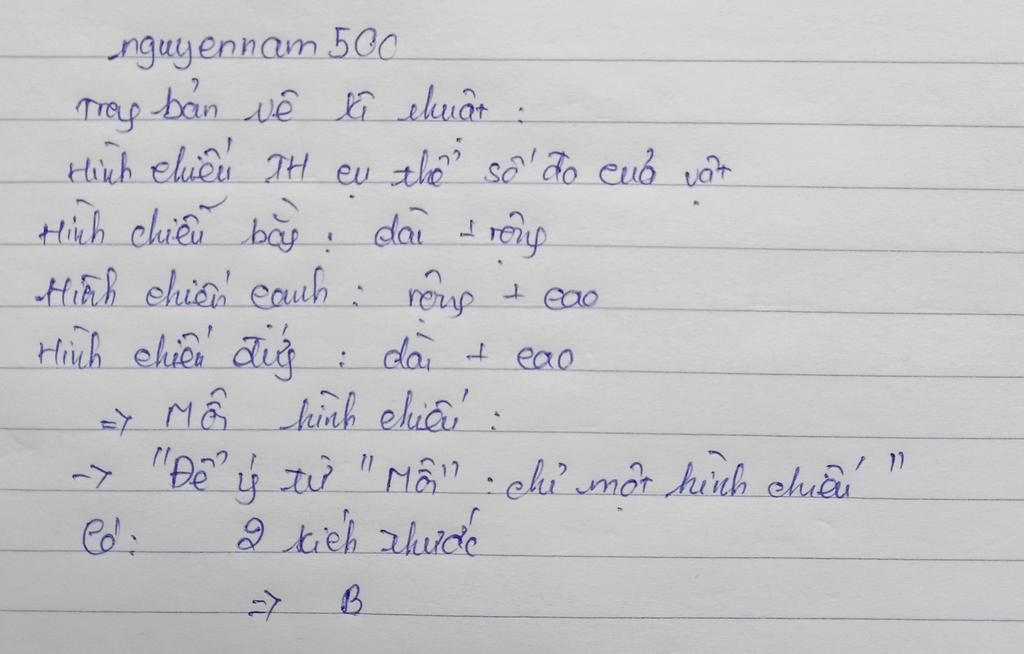 nguyennam 500
Trong bản vẽ kĩ thuật :
Hình chiếu TH cụ thể số đo của vật
Hình chiếu bằng : dài + rộng
Hình chiếu cạnh : rộng + cao
Hình chiếu đứng : dài + cao
=> Mỗi hình chiếu :
-> "Để ý từ "Mỗi" : chỉ một hình chiếu"
Có: 2 kích thước
=> B